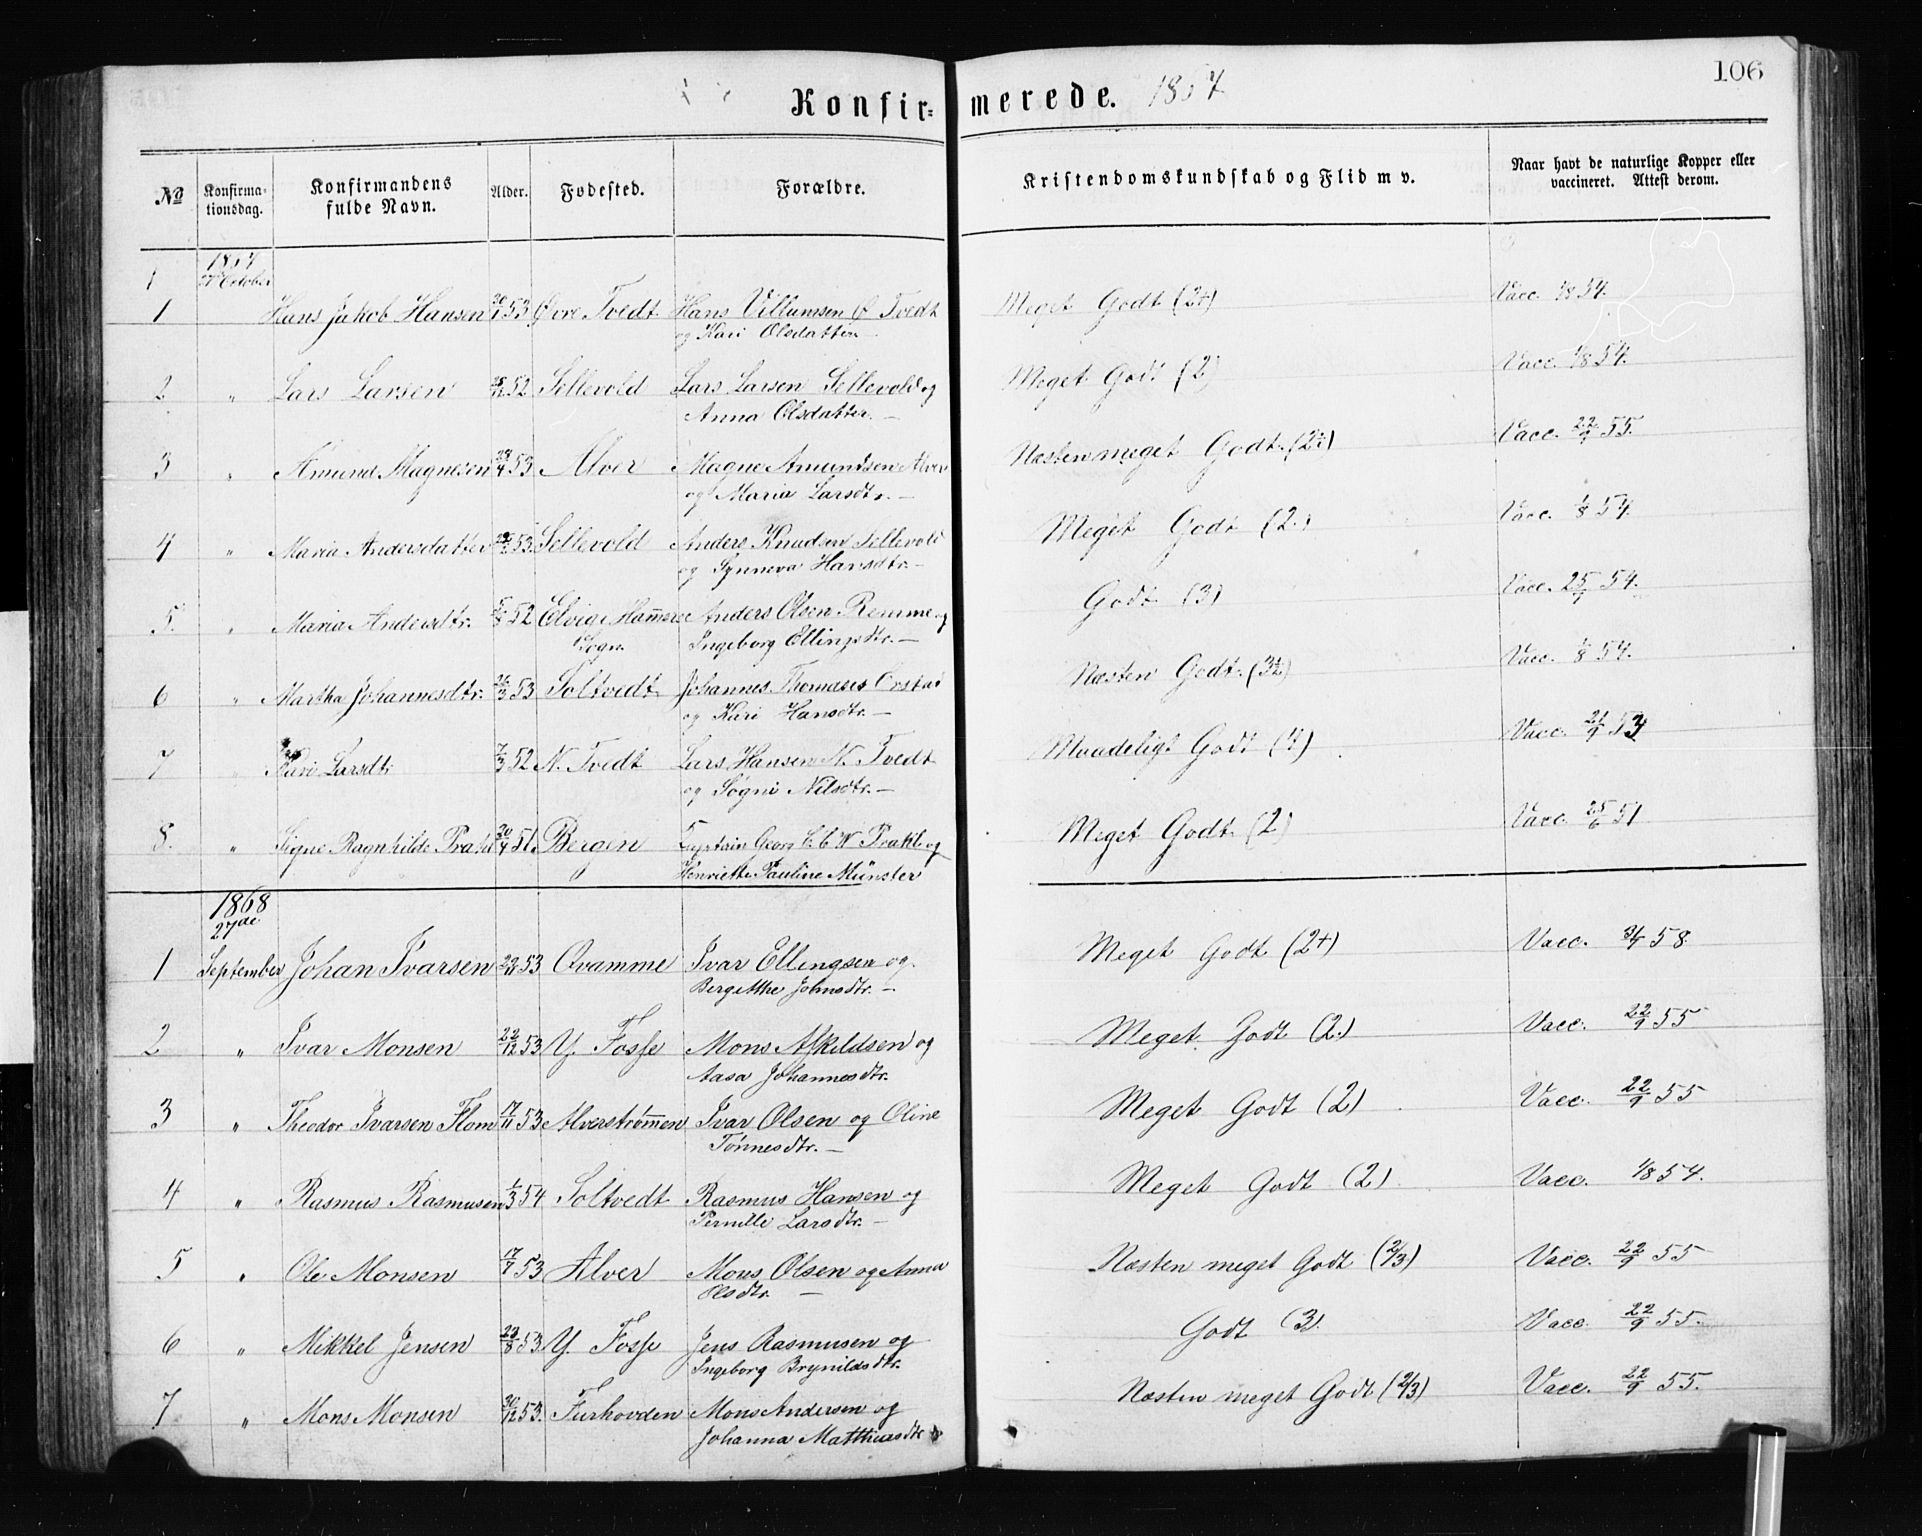 106
Konfirmerede. 1867
No Konfirmationsdag. Konfirmandens fulde Navn. Alder. Fødested. Forældre. Kristendomskundskab og Flid m v. Naar havt de naturlige Kopper eller vaccineret. Attest derom.
1867
October
1 Hans Jakob Hansen 53 Øvre Tvedt Hans Villumsen Ø Tvedt Meget Godt (2+) Vacc. 1854.
og Kari Olsdatter —
2 " Lars Larsen 52 Sellevold Lars Larsen Sellevold og Meget Godt (2) Vacc. 1/8 54.
Anna Olsdatter. —
3 " Amund Magnesen 53 Alver Magne Amundsen Alver Næsten meget Godt. Vacc. 22/9 55.
og Maria Larsdtr. —
4 " Maria Andersdatter 53. Sellevold Anders Knudsen Sellevold Meget Godt (2.) Vacc. 1/8 54.
og Synneva Hansdtr. —
5. " Maria Andersdtr. 52 Elvig Hammers Anders Olsen Remme og Godt (3) Vacc. 54.
Sogn. Ingeborg Ellingsdtr. —
6 " Martha Johannesdtr. 53 Soltvedt Johannes Thomases Næsten Godt. Vacc. 1/8 54.
og Kari Hansdtr. —
7 " Kari Larsdtr 52 N. Tvedt Lars Hansen N. Tvedt Maadeligt Godt (4) Vacc. 53
og Søgni Nilsdtr. —
8. " Signe Ragnhilde Prahl 20/4 51. Bergen Captain Georg C. C. W Prahl og Meget Godt (2) Vacc. 25/6 51
Henriette Pauline Münster
1868
27de
1 September Johan Ivarsen 53 Qvamme Ivar Ellingsen og Meget Godt (2+) Vacc. 58.
Bergitthe Johnsdtr. —
2 " Ivar Monsen 22/12 53 Y. Fosse Mons Askildsen og Meget Godt (2.) Vacc. 22/9 55
Aasa Johannesdtr.
3 " Theodor Ivarsen Flom 17/11 53 Alverstrømmen Ivar Olsen og Oline Meget Godt (2) Vacc. 22/9 55
Tønnesdtr. —
4 " Rasmus Rasmusen 1/3 54 Soltvedt Rasmus Hansen og Meget Godt (2) Vacc. 1/8 54.
Pernille Larsdtr. —
5 " Ole Monsen 17/7 53 Alver Mons Olsen og Anna Næsten meget Godt (2/3) Vacc. 22/9 55
Olsdtr. —
6 " Mikkel Jensen 23/8 53 Y. Fosse Jens Rasmusen og Godt (3) Vacc. 22/9 55.
Ingeborg Brynildsdtr.
7 " Mons Monsen 30/12 53. Furhovden Mons Andersen og Næsten meget Godt (2/3) Vacc. 22/9 55.
Johanna Matthiasdtr